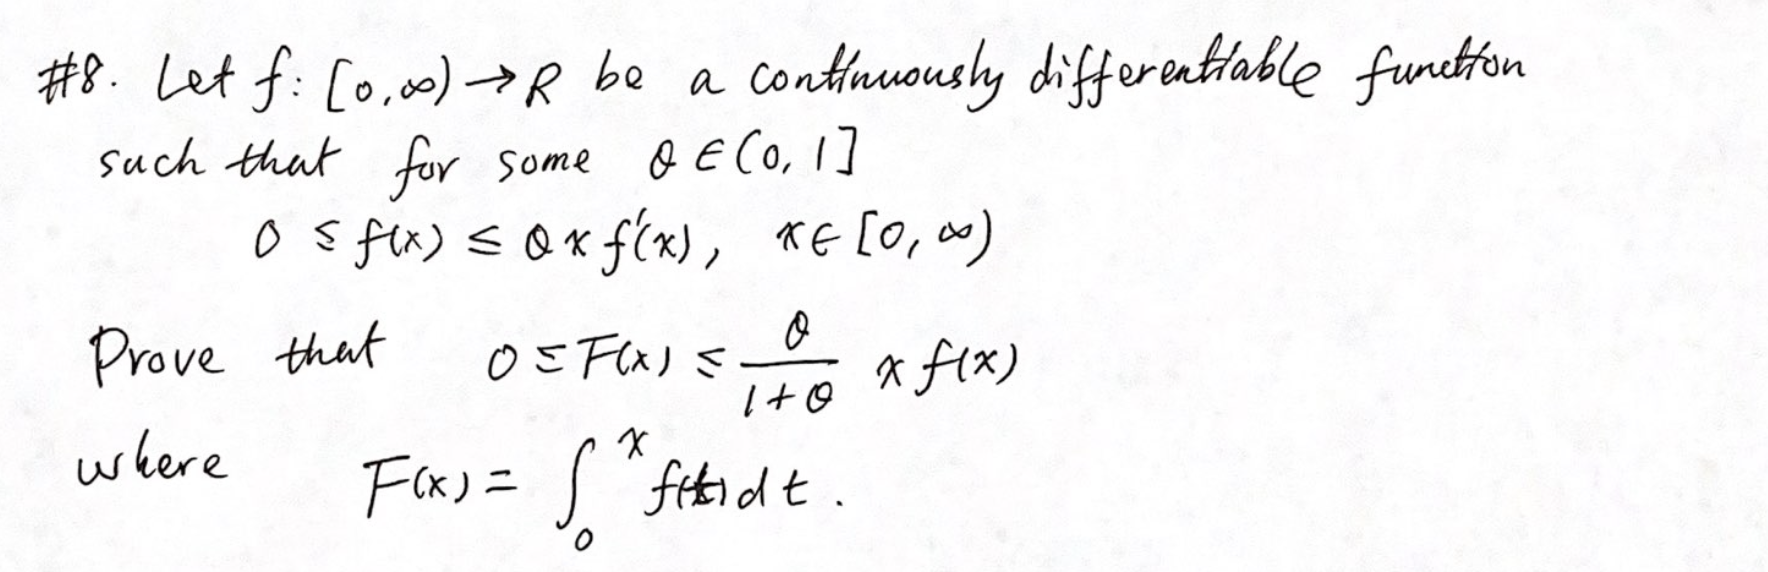 #8. Let f: [0,∞) → R be a continuously differentiable function
such that for some θ ∈ (0, 1]
0 ≤ f(x) ≤ θ x f'(x), x ∈ [0, ∞)
Prove that 0 ≤ F(x) ≤ θ/(1+θ) x f(x)
where F(x) = ∫₀ˣ f(t) dt.